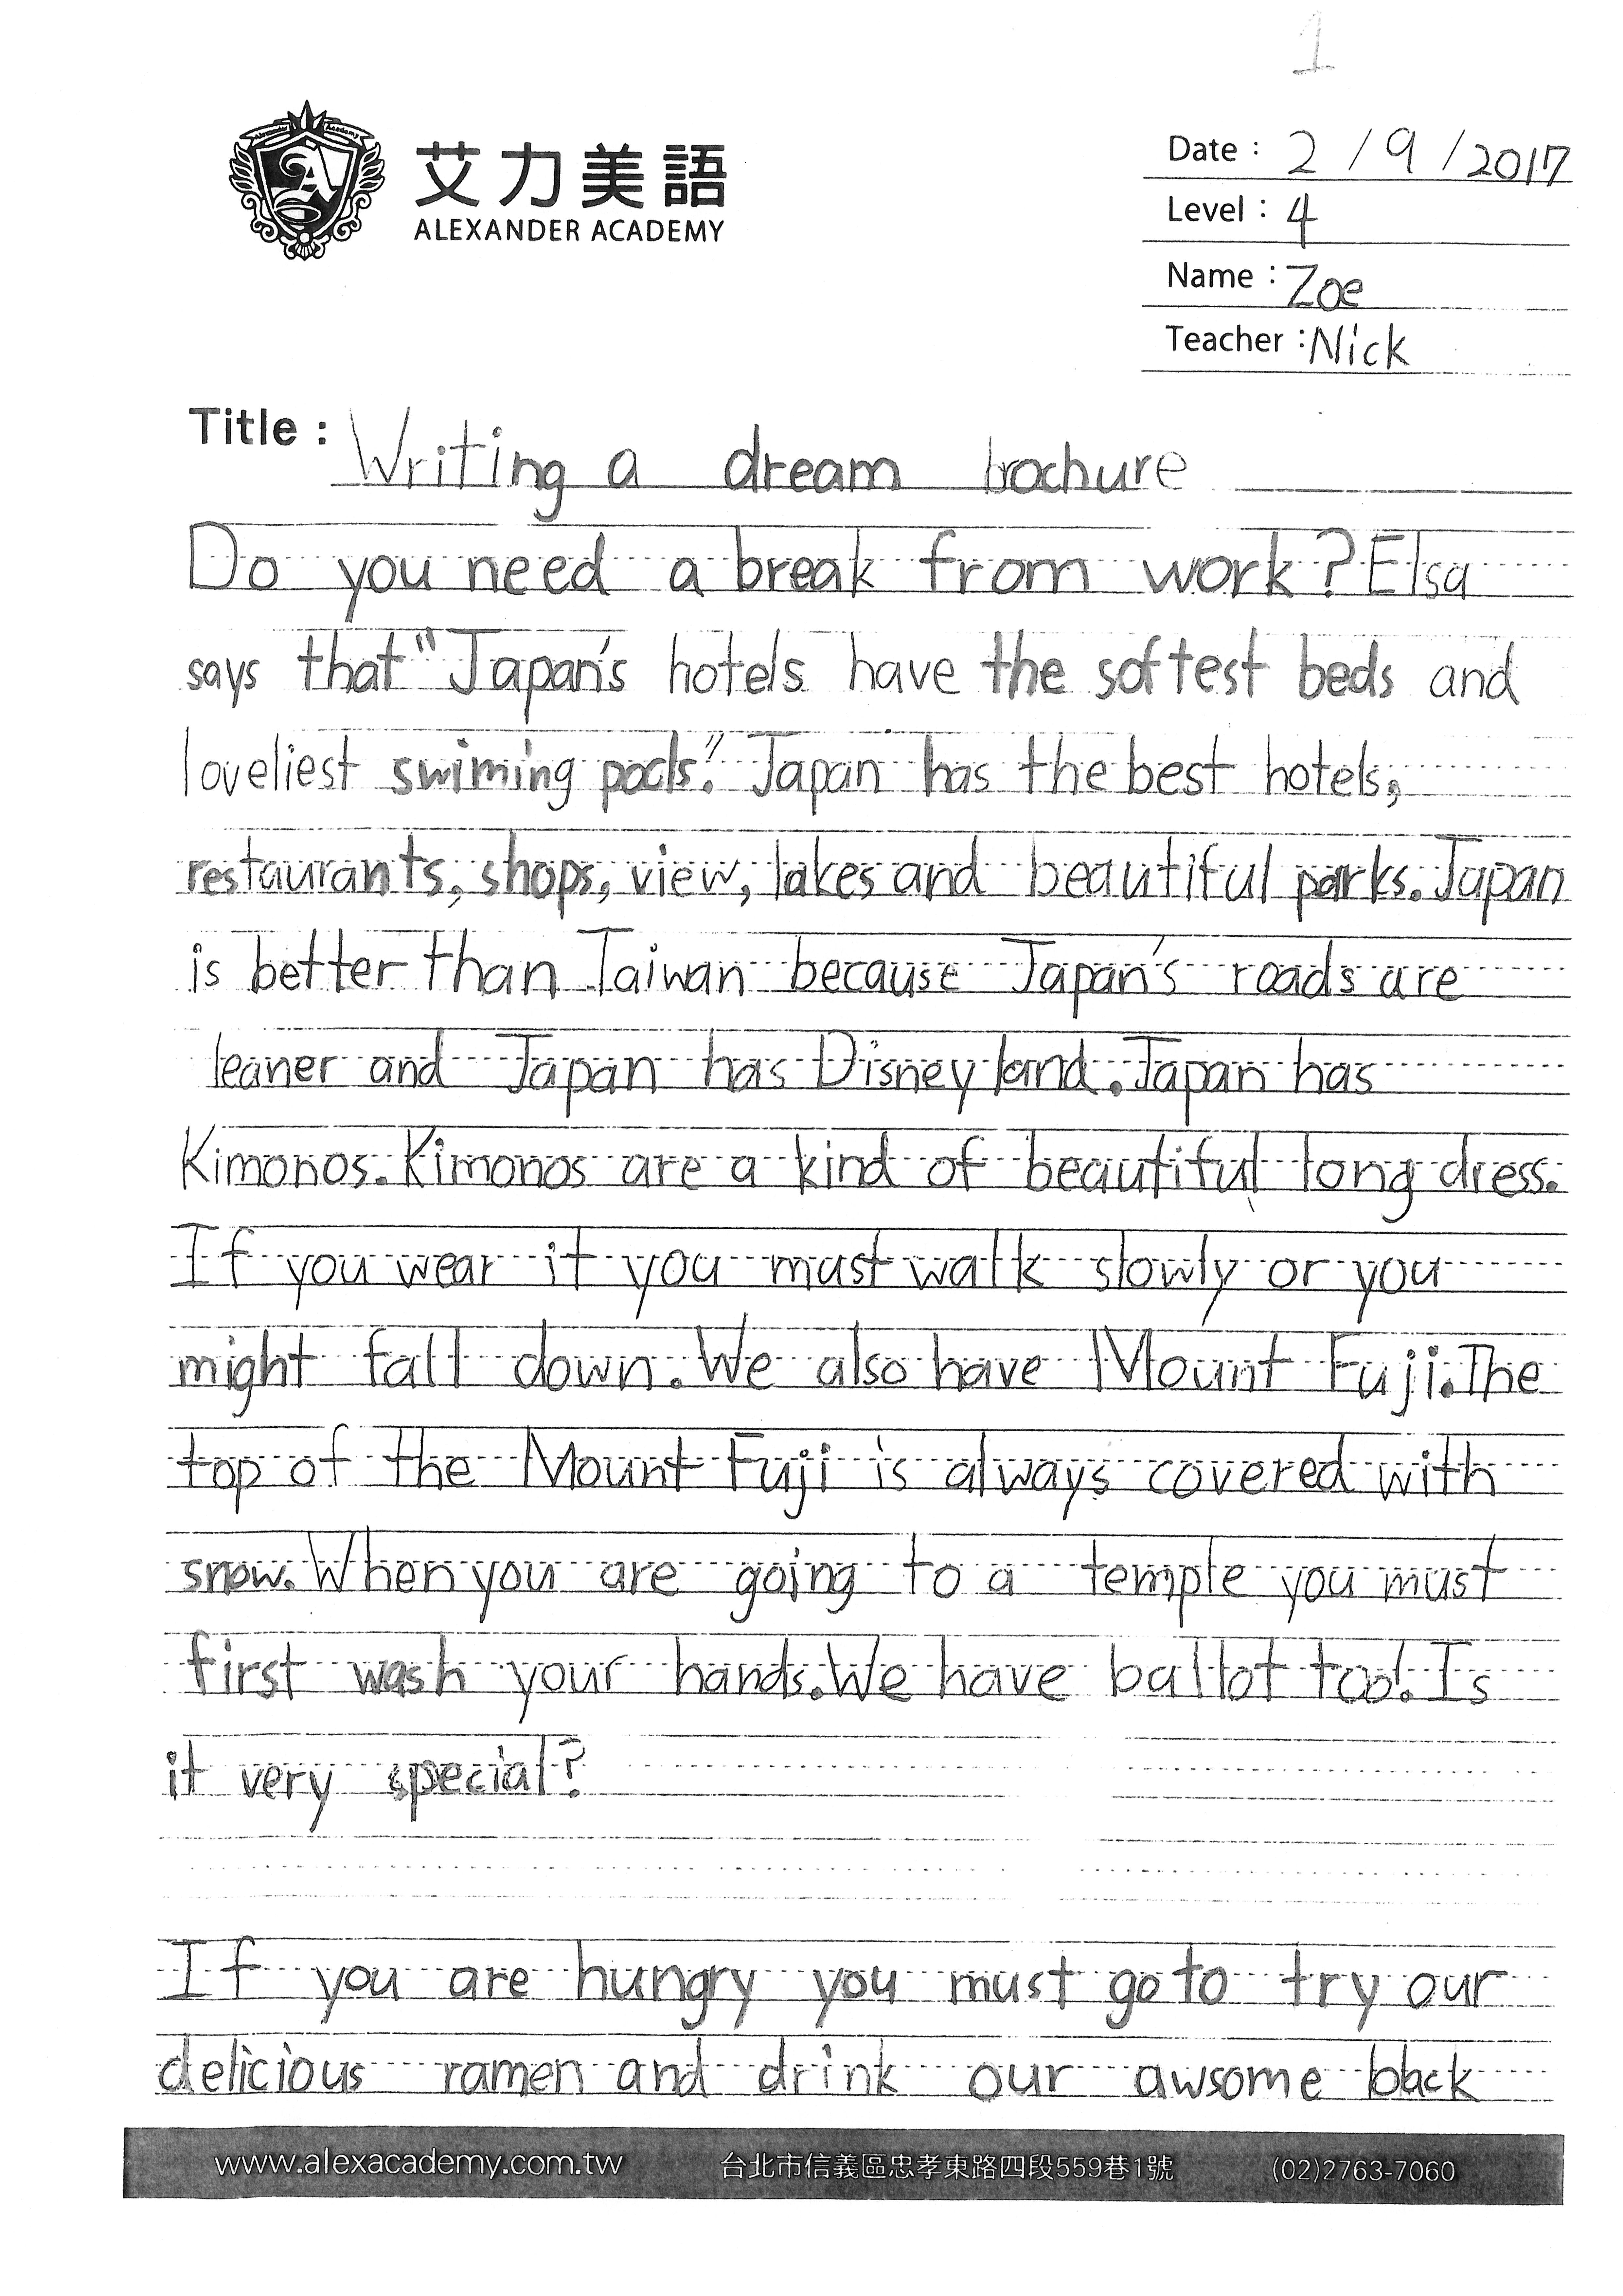 1
艾力美語
ALEXANDER ACADEMY
Date : 2 / 9 / 2017
Level : 4
Name : Zoe
Teacher : Nick
Title : Writing a dream brochure
Do you need a break from work? Elsa
says that "Japan's hotels have the softest beds and
loveliest swiming pools". Japan has the best hotels,
restaurants, shops, view, lakes and beautiful parks. Japan
is better than Taiwan because Japan's roads are
leaner and Japan has Disney land. Japan has
Kimonos. Kimonos are a kind of beautiful long dress.
If you wear it you must walk slowly or you
might fall down. We also have Mount Fuji. The
top of the Mount Fuji is always covered with
snow. When you are going to a temple you must
first wash your hands. We have ballot too!. Is
it very special?
If you are hungry you must go to try our
delicious ramen and drink our awsome black
www.alexacademy.com.tw 台北市信義區忠孝東路四段559巷1號 (02)2763-7060